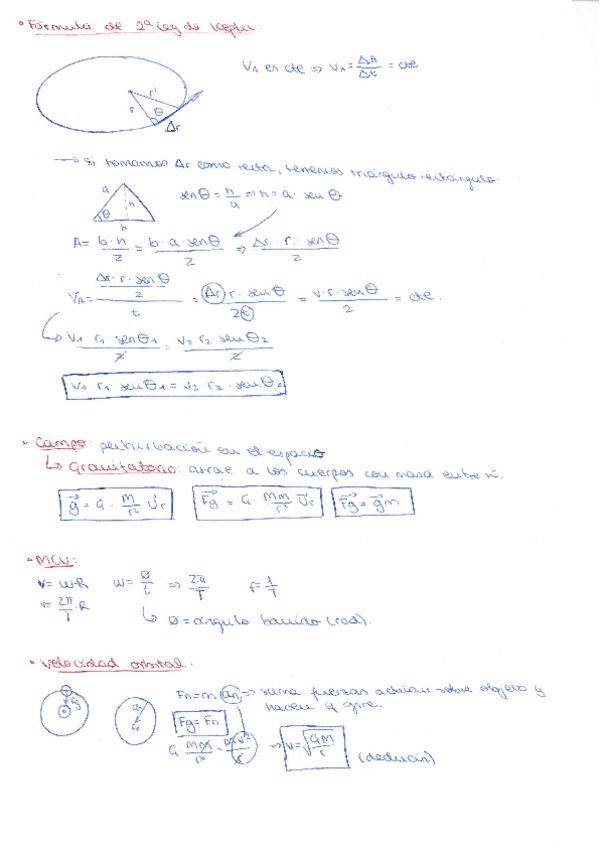 • Fórmula de 2ª Ley de Kepler:
VA es cte ⇒ VA = ΔA/Δt = cte
r' r θ Δr
→ Si tomamos Δr como recta, tenemos triángulo rectángulo:
a h θ b
senθ = h/a ⇒ h = a · senθ
A = b·h/2 = b·a·senθ/2 ⇒ Δr · r · senθ/2
VA = (Δr · r · senθ/2)/t = Δr · r · senθ/2t = v · r · senθ/2 = cte.
↳ V1 · r1 · senθ1/2 = V2 · r2 · senθ2/2
V1 · r1 · senθ1 = V2 · r2 · senθ2
• Campo: perturbación en el espacio
↳ Gravitatorio: atrae a los cuerpos con masa entre sí.
g = G · M/r² Ur
Fg = G · Mm/r² Ur
Fg = g m
• MCU:
v = ω·R ω = Ø/t ⇒ 2π/T f = 1/T
v = 2π/T · R
↳ Ø = ángulo barrido (rad).
• Velocidad orbital:
Fn = m · an ⇒ suma fuerzas actúan sobre objeto y
hacen q gire.
Fg = Fn
G Mm/r² = m v²/r ⇒ v = √(GM/r) (deducir)